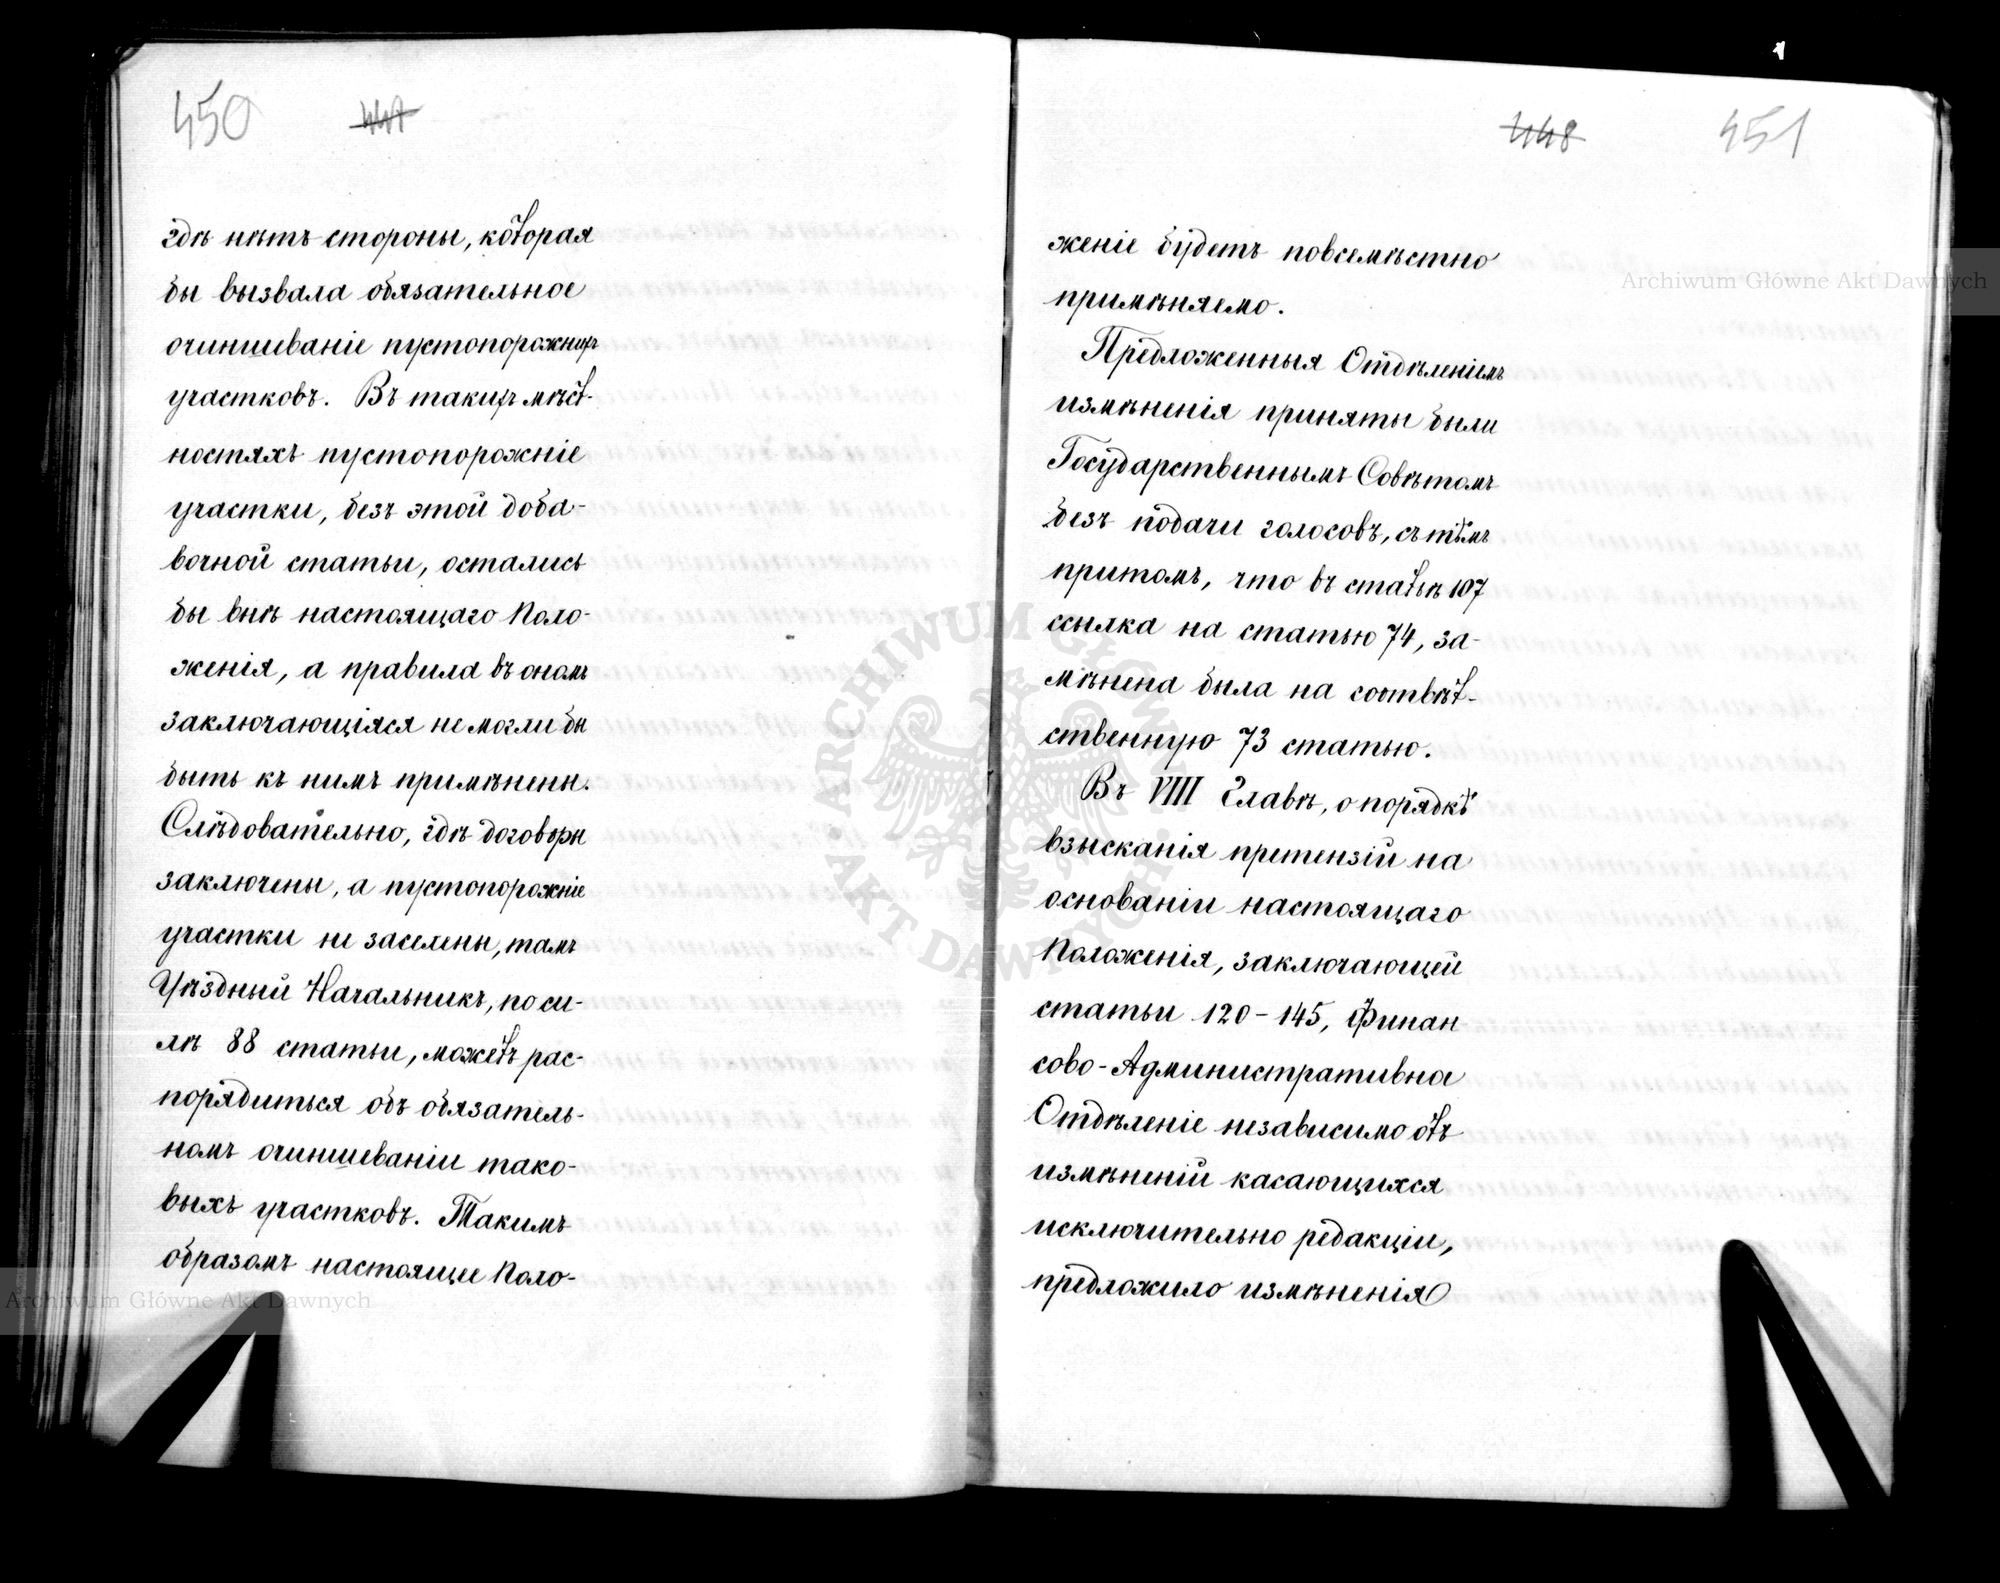 450 447
гдѣ нѣтъ стороны, которая
бы вызвала обязательное
очиншеваніе пустопорожнихъ
участковъ. Въ такихъ мѣст-
ностяхъ пустопорожніе
участки, безъ этой доба-
вочной статьи, остались
бы внѣ настоящаго Поло-
женія, а правила въ ономъ
заключающіяся не могли бы
быть къ нимъ примѣнены.
Слѣдовательно, гдѣ договоры
заключены, а пустопорожніе
участки не заселены, тамъ
Уѣздный Начальникъ, по си-
лѣ 88 статьи, можетъ рас-
порядиться объ обязатель-
номъ очиншеваніи тако-
выхъ участковъ. Такимъ
образомъ настоящее Поло-
448 451
женіе будетъ повсемѣстно
примѣняемо.
Предложенныя Отдѣленіемъ
измѣненія приняты были
Государственнымъ Совѣтомъ
безъ подачи голосовъ, съ тѣмъ
притомъ, что въ статьѣ 107
ссылка на статью 74, за-
мѣнена была на соотвѣт-
ственную 73 статью.
Въ VIII Главѣ, о порядкѣ
взысканія претензій на
основаніи настоящаго
Положенія, заключающей
статьи 120-145, Финан
сово-Административна
Отдѣленіе независимо отъ
измѣненій касающихся
исключительно редакціи,
предложило измѣненія
Archiwum Główne Akt Dawnych
Archiwum Główne Akt Dawnych
ARCHIWUM GŁÓWNE AKT DAWNYCH